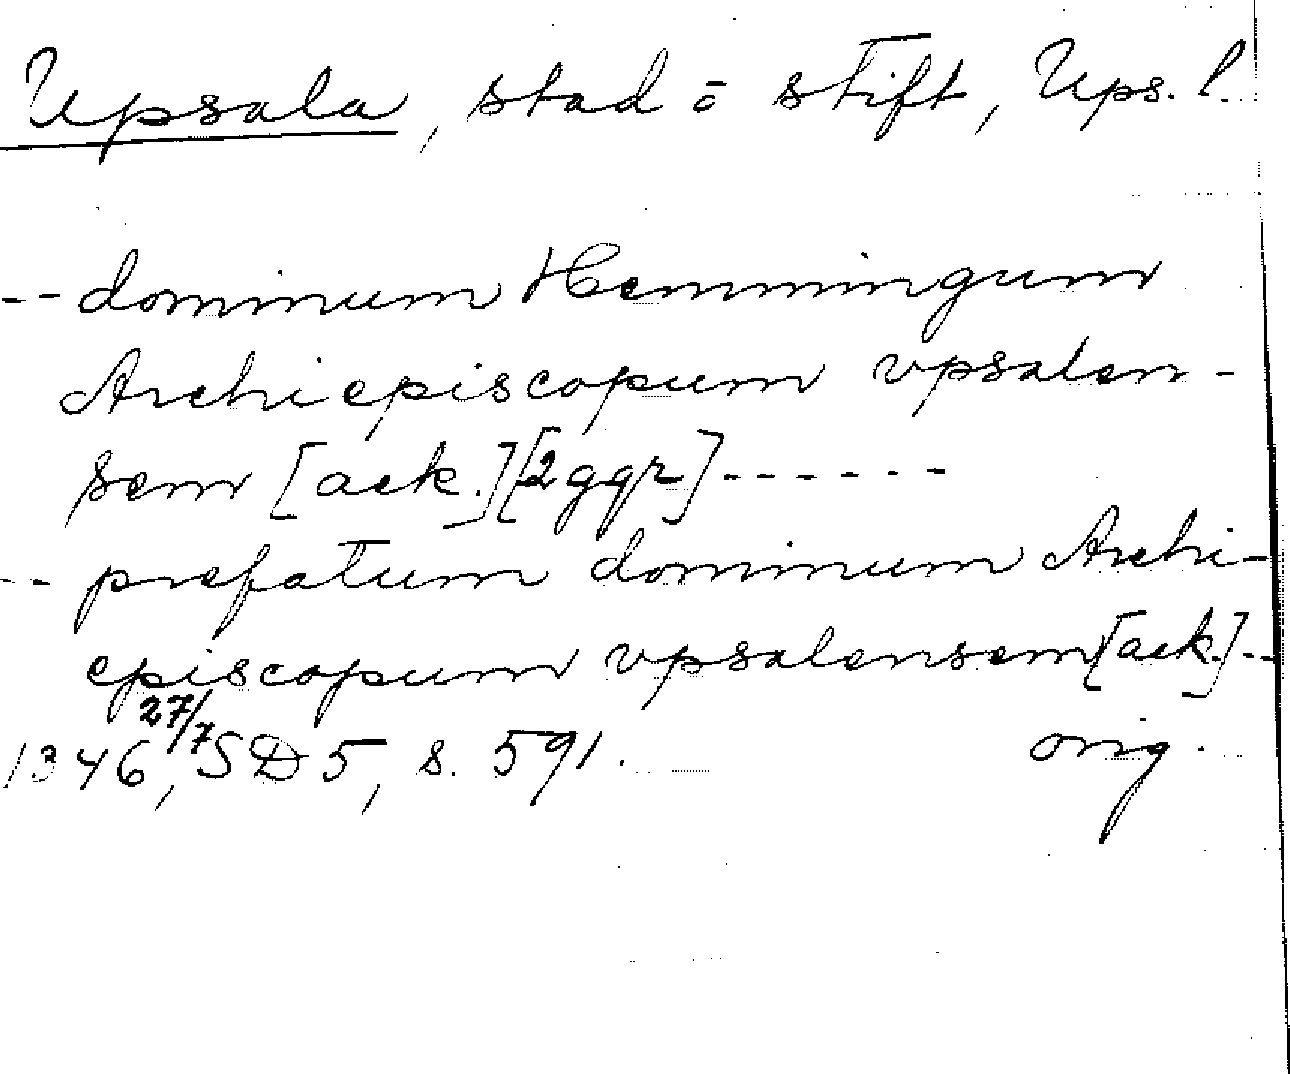 Upsala, stad o stift, Ups. l.
-- dominum Hemmingum
Archiepiscopum vpsalen-
sem [ack.] [2 ggr] ------
-- prefatum dominum Archi-
episcopum vpsalensem [ack.] --
1346 27/7, SD 5, s. 591. orig.